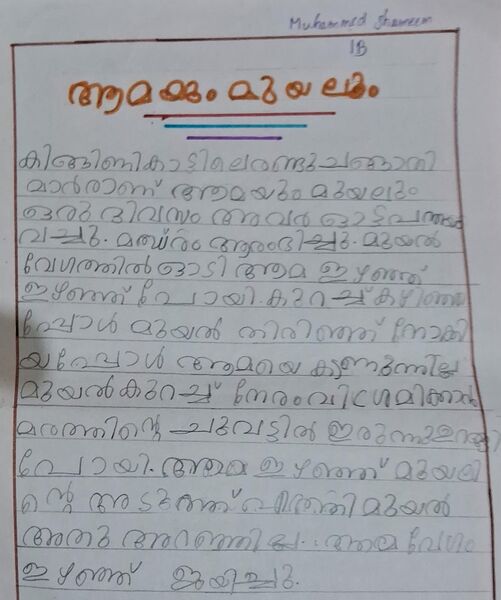 Muhammed Shameem
1B
ആമക്കും മുയലും
കിങ്ങിണികാട്ടിലെ രണ്ടു ചങ്ങാതി
മാർരാണ് ആമയും മുയലും
ഒരു ദിവസം അവർ ഓട്ടപന്തയം
വച്ചു. മത്സരം ആരംഭിച്ചു. മുയൽ
വേഗത്തിൽ ഓടി ആമ ഇഴഞ്ഞ്
ഇഴഞ്ഞ് പോയി. കുറച്ച് കഴിഞ്ഞ
പ്പോൾ മുയൽ തിരിഞ്ഞ് നോക്കി
യപ്പോൾ ആമയെ കാണുന്നില്ല
മുയൽ കുറച്ച് നേരം വിശ്രമിക്കാൻ
മരത്തിന്റെ ചുവട്ടിൽ ഇരുന്നു ഉറങ്ങി
പോയി. ആമ ഇഴഞ്ഞ് മുയലി
ന്റെ അടുത്ത് എത്തി മുയൽ
അതു അറിഞ്ഞില്ല.. ആമ വേഗം
ഇഴഞ്ഞ് ജയിച്ചു.